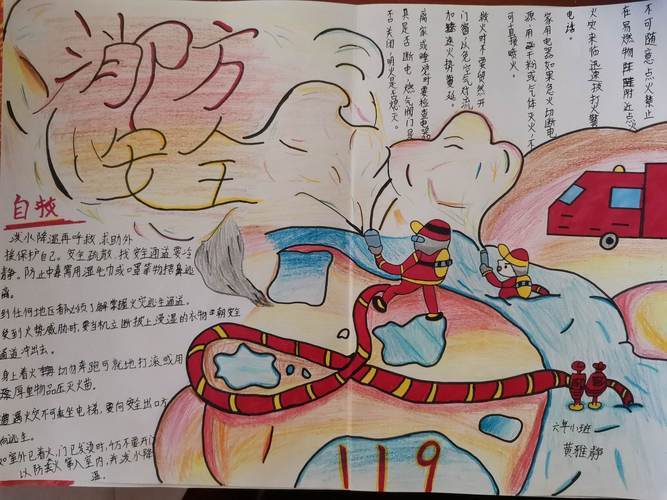 消防
安全
自救
浇水降温再呼救 求助外
援保护自己。安全疏散、找安全通道要冷
静。防止中毒需用湿毛巾或口罩等物捂鼻逃
离。
到任何地区都必须了解掌握火灾逃生通道。
受到火势威胁时，要当机立断披上浸湿的衣物
通道冲出去。
身上着火 切勿奔跑可就地打滚或用
厚重物品压灭火苗。
遇火灾不可乘坐电梯，要向安全出口方
向逃生。
如室外已着火，门已发烫时，千万不要开门
以防大火窜入室内，浇水降
温
不可随意点火禁止
在易燃物 附近点火
火灾来临迅速拨打火警
电话。
家用电器如果急火切断电
源 用干粉或气体灭火，不
可直接喷火。
救火时不要贸然开
门窗以免空气对流
加 火势蔓延。
离家或睡觉时要检查电器
具是否断电，燃气阀门是
否关闭，明火是否熄灭。
119
六年小班
黄雅静